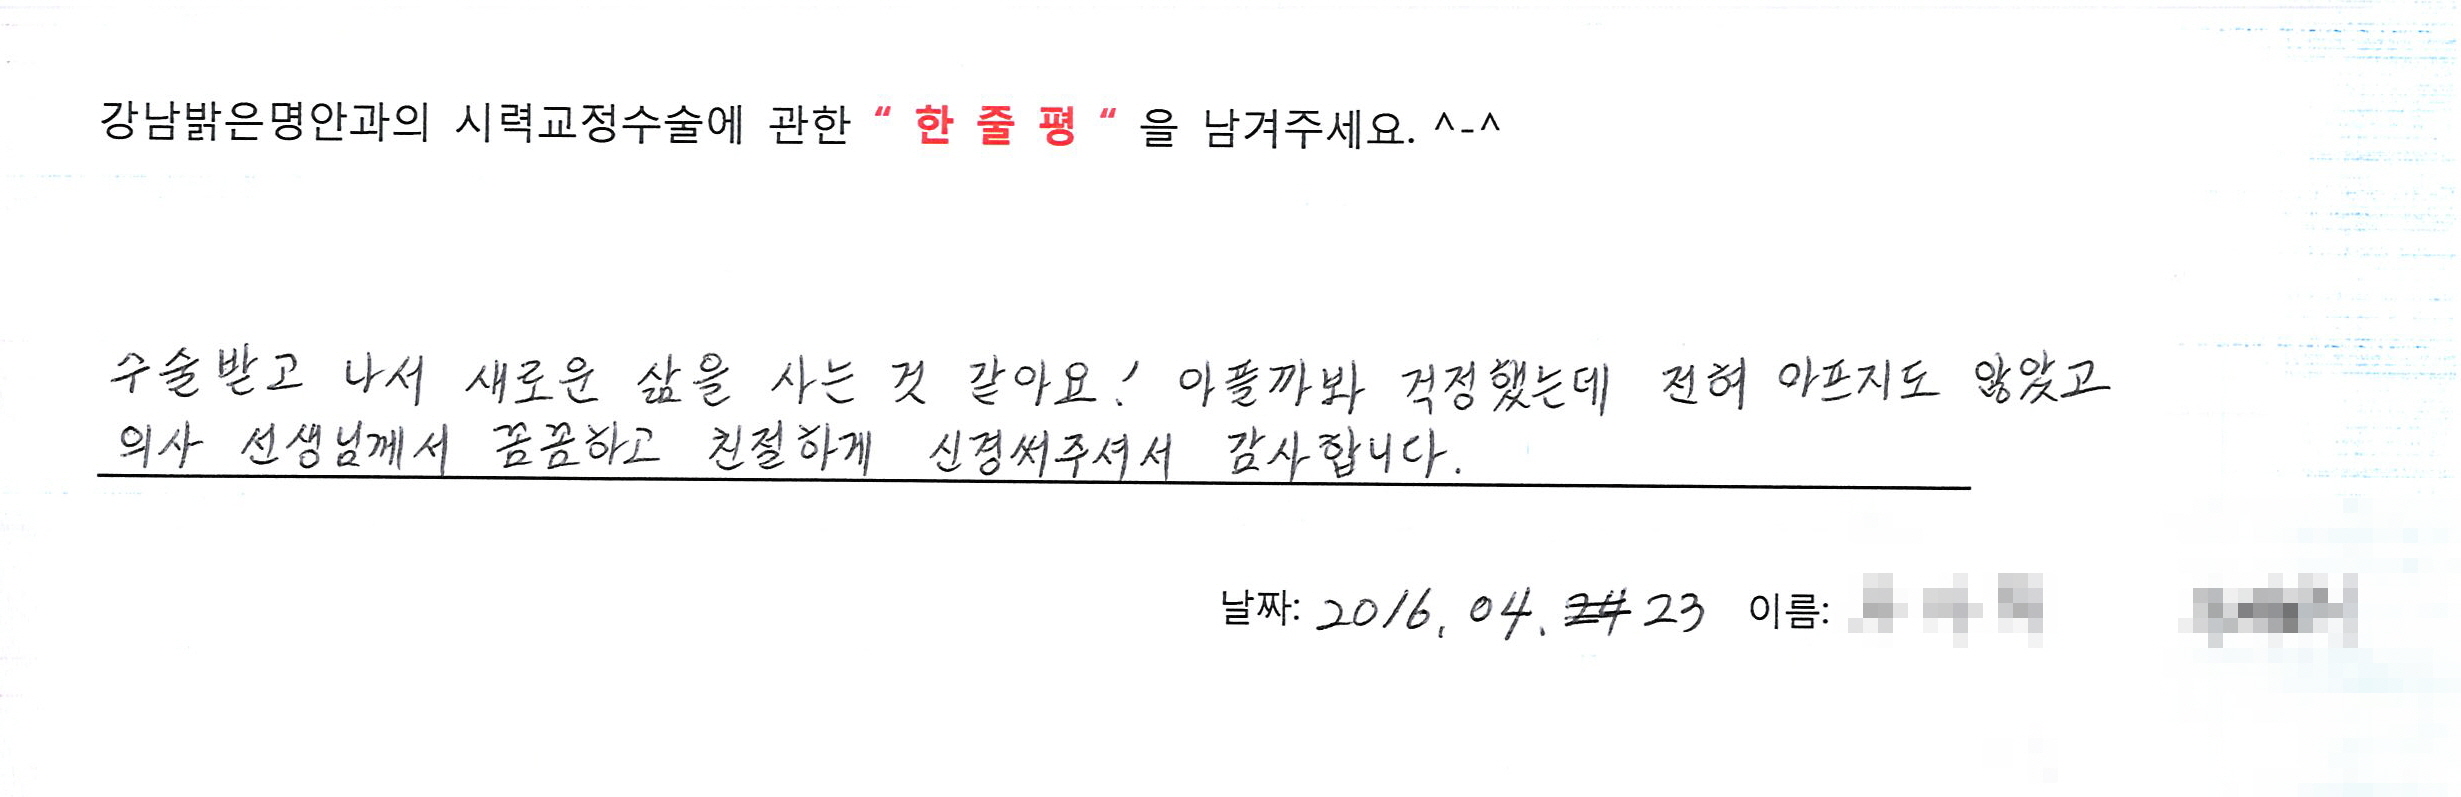 강남밝은명안과의 시력교정수술에 관한 “ 한 줄 평 “ 을 남겨주세요. ^-^
수술받고 나서 새로운 삶을 사는 것 같아요! 아플까봐 걱정했는데 전혀 아프지도 않았고
의사 선생님께서 꼼꼼하고 친절하게 신경써주셔서 감사합니다.
날짜: 2016. 04. 24 23 이름: